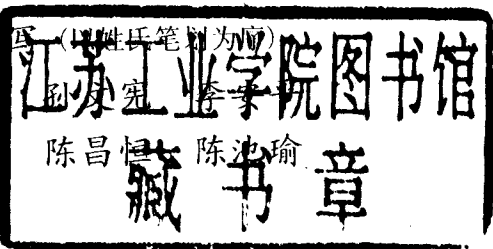 写（以姓氏笔划为序）
江苏工业学院图书馆
孙文宪 李
陈昌恒 陈池瑜
藏书章